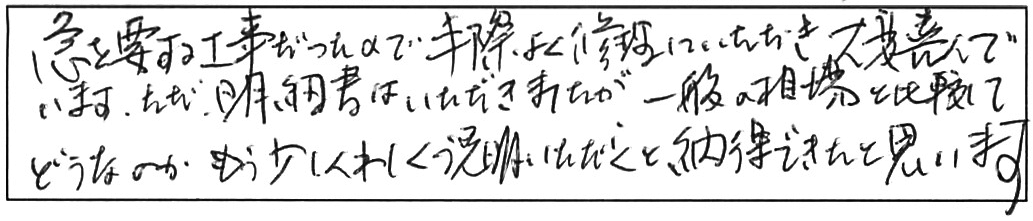 急を要する工事だったので手際よく修理していただき大変喜んで
います。ただ、明細書はいただきましたが一般の相場と比較して
どうなのか もう少しくわしく説明いただくと納得できたと思います